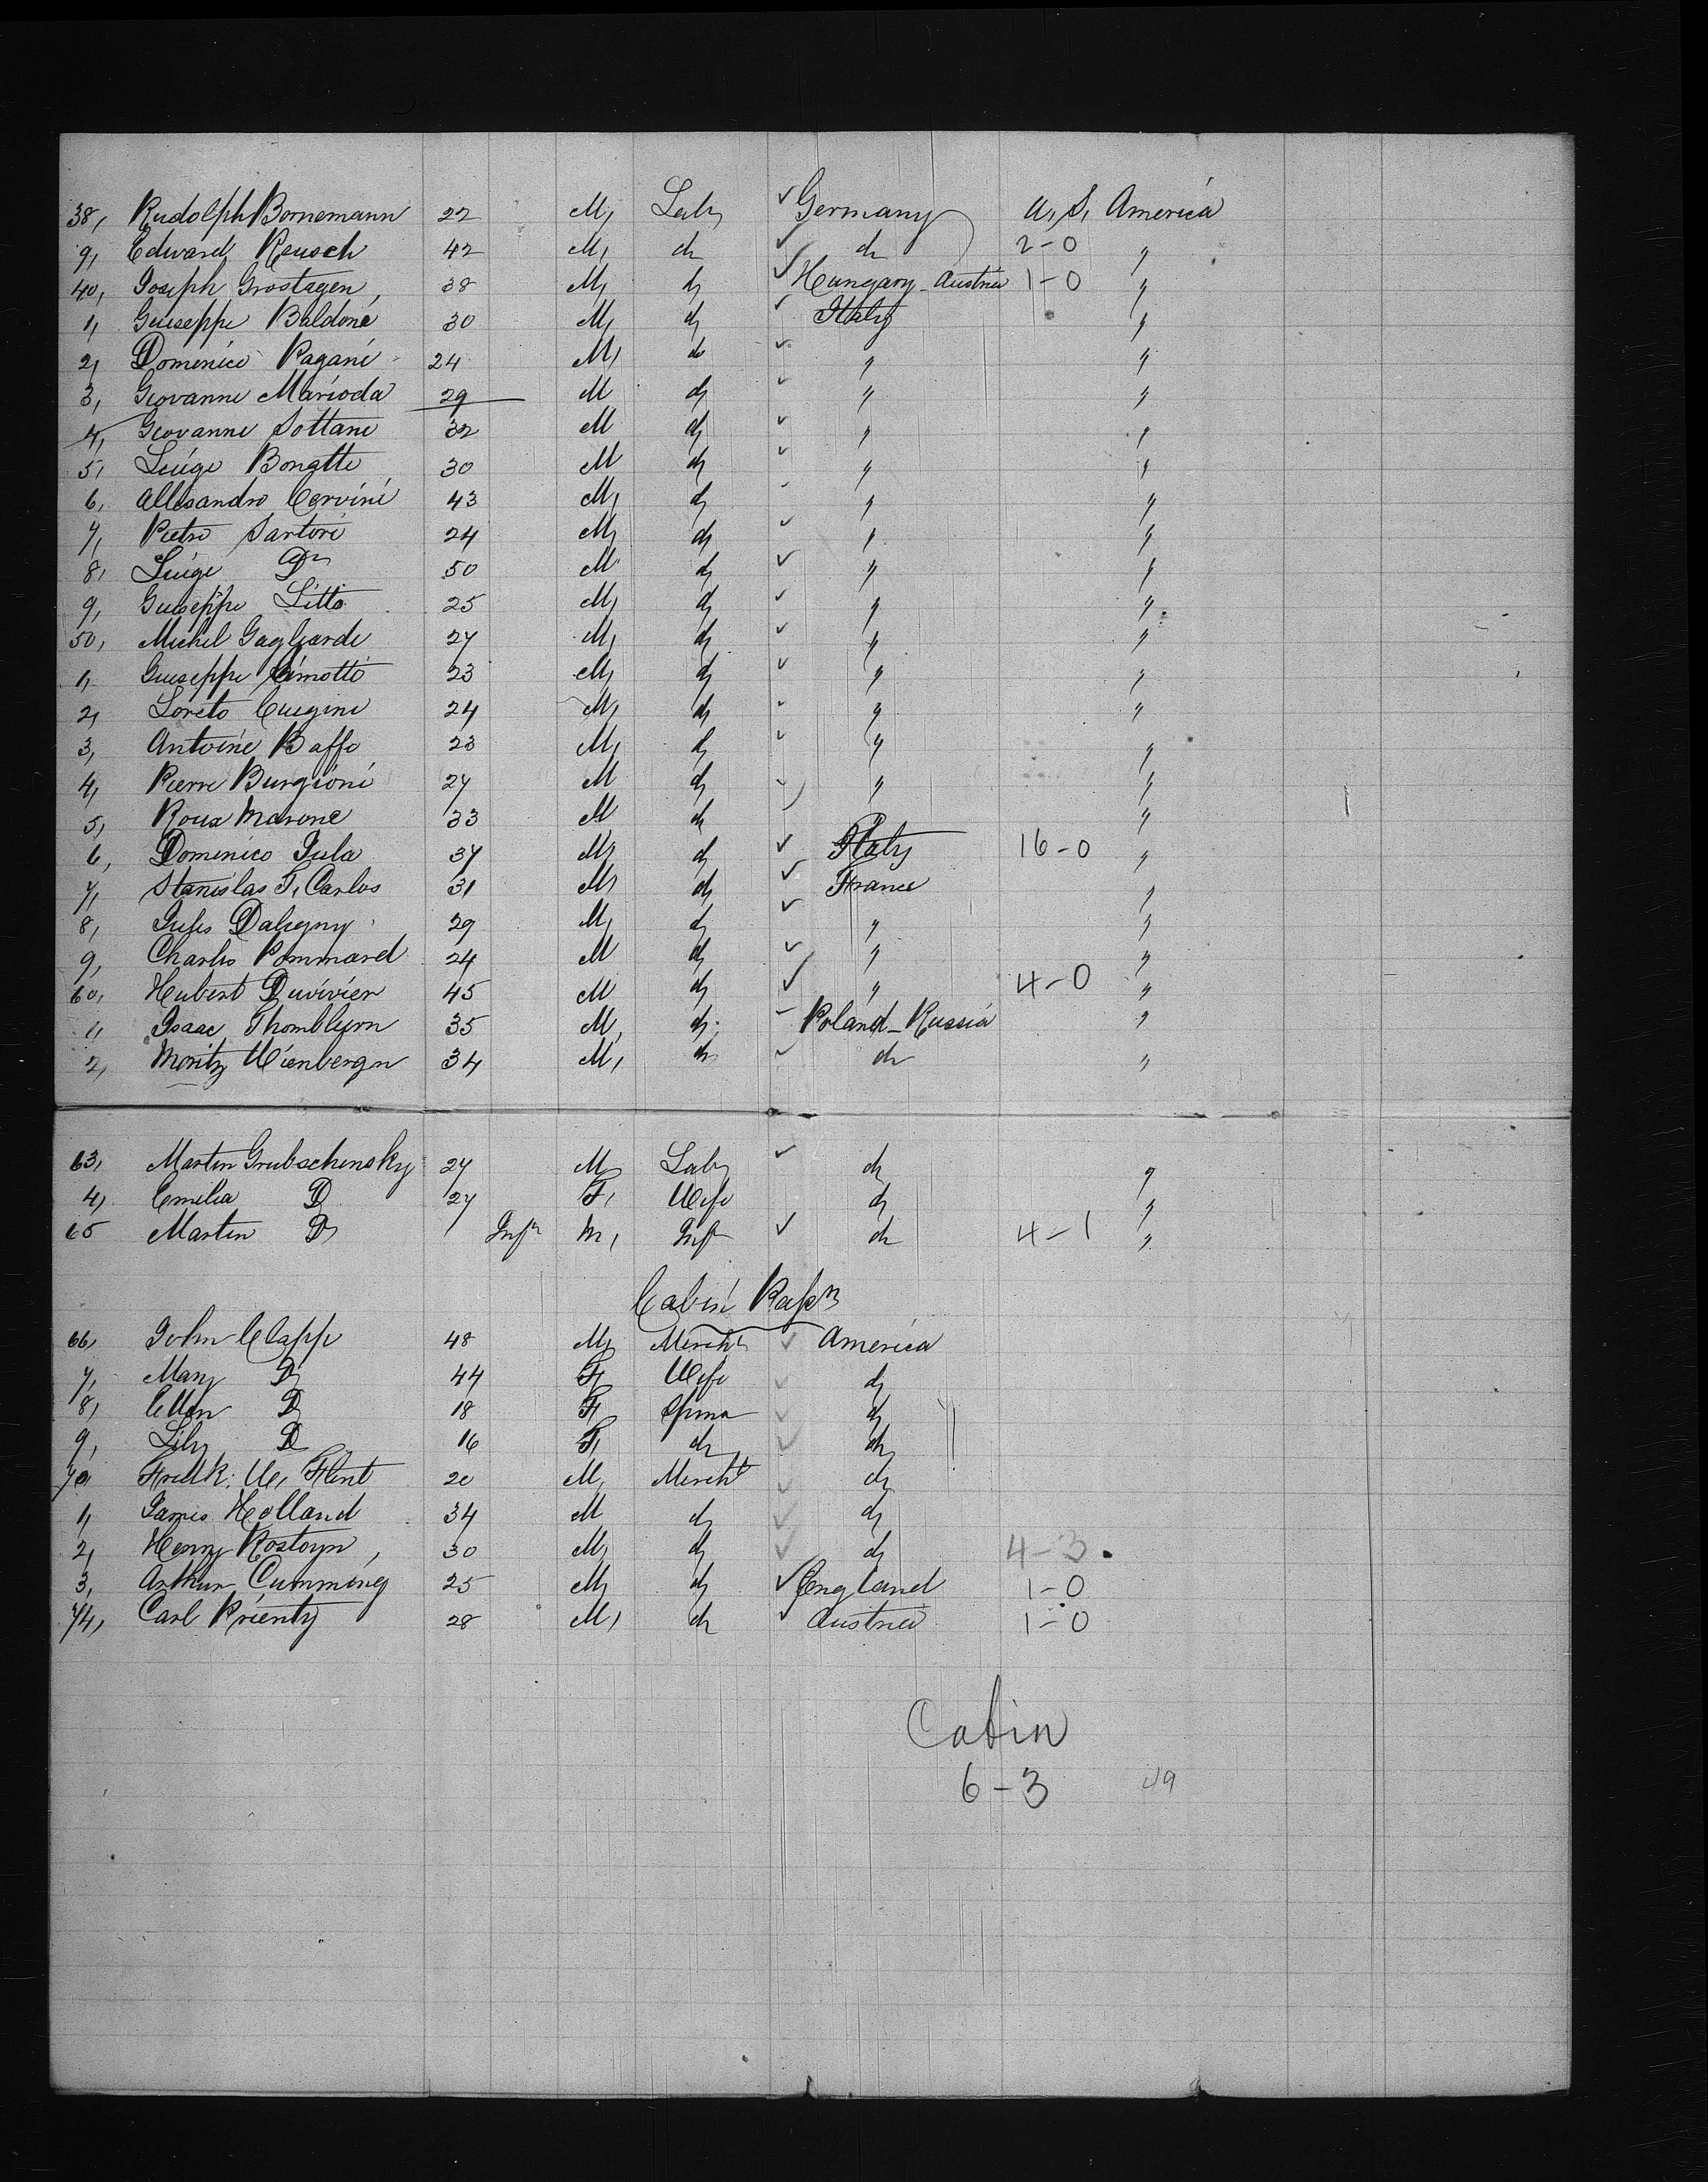 38, Rudolph Bornemann 22 M, Labr ✓ Germany U, S, America
9, Edward Reusch 42 M, do ✓ do 2-0 "
40, Joseph Grostagen, 38 M, do ✓ Hungary-Austria 1-0 "
1, Guiseppe Baldone 30 M, do ✓ Italy "
2, Domenico Pagani 24 M, do ✓ " "
3, Giovanni Marioda 29 M do ✓ " "
4, Giovanni Sottani 32 M do ✓ " "
5, Luigi Bonatti 30 M do ✓ " "
6, Allesandro Cervini 43 M, do " "
7, Pietro Sartori 24 M, do ✓ " "
8, Luigi Do 50 M do ✓ " "
9, Guiseppe Litto 25 M, do ✓ " "
50, Michel Gagliardi 27 M, do ✓ " "
1, Guiseppe Cimotti 23 M, do ✓ " "
2, Loreto Cuigini 24 M, do ✓ " "
3, Antoine Baffo 23 M, do ✓ " "
4, Pierre Burgioni 27 M do ✓ " "
5, Roux Marone 33 M do " "
6, Domenico Jula 37 M, do ✓ Italy 16-0 "
7, Stanislas F, Carlos 31 M, do ✓ France "
8, Jules Daligny 29 M, do ✓ " "
9, Charles Pommard 24 M do ✓ " "
60, Hubert Duvivier 45 M do ✓ " 4-0 "
1, Isaac 35 M, do Poland-Russia "
2, Moritz 34 M, do ✓ do "
63, Martin Grubschensky 27 M, Labr ✓ do "
4, Emilia Do 27 F, Wife do "
65 Martin Do Inft M, Inft ✓ do 4-1 "
Cabin Passrs
66, John Clapp 48 M, Mercht ✓ America
7, Mary Do 44 F, Wife ✓ do
8, Ellen Do 18 F, Spinr ✓ do
9, Lily Do 16 F, do ✓ do
70 Fredk. W, Flint 20 M, Mercht ✓ do
1, James Holland 34 M do ✓ do
2, Henry 30 M, do ✓ do 4-3
3, Arthur Cumming 25 M, do ✓ England 1-0
74, Carl Prienty 28 M, do ✓ Austria 1-0
Cabin
6-3 49